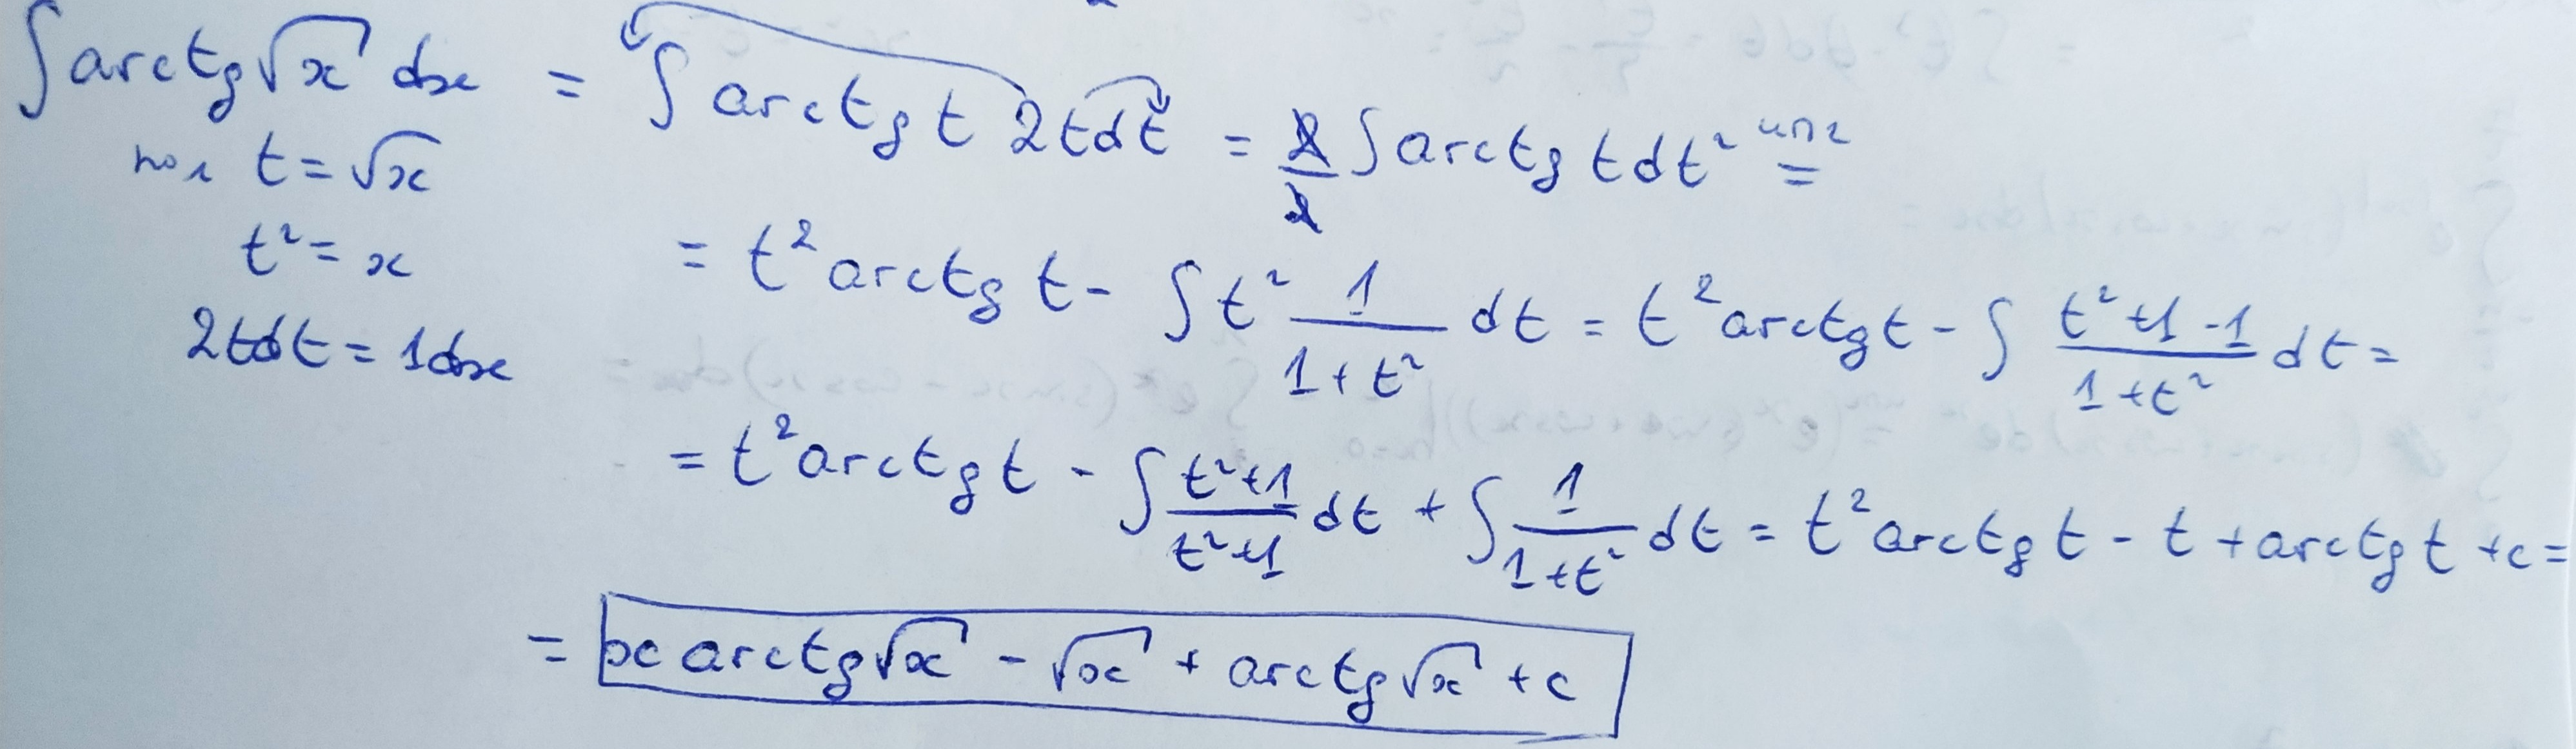 ∫ arctg √x dx = ∫ arctg t 2t dt = 2/2 ∫ arctg t dt² =
t = √x
t² = x = t² arctg t - ∫ t² 1/(1+t²) dt = t² arctg t - ∫ (t²+1-1)/(1+t²) dt =
2t dt = 1 dx
= t² arctg t - ∫ (t²+1)/(t²+1) dt + ∫ 1/(1+t²) dt = t² arctg t - t + arctg t + c =
= x arctg √x - √x + arctg √x + c